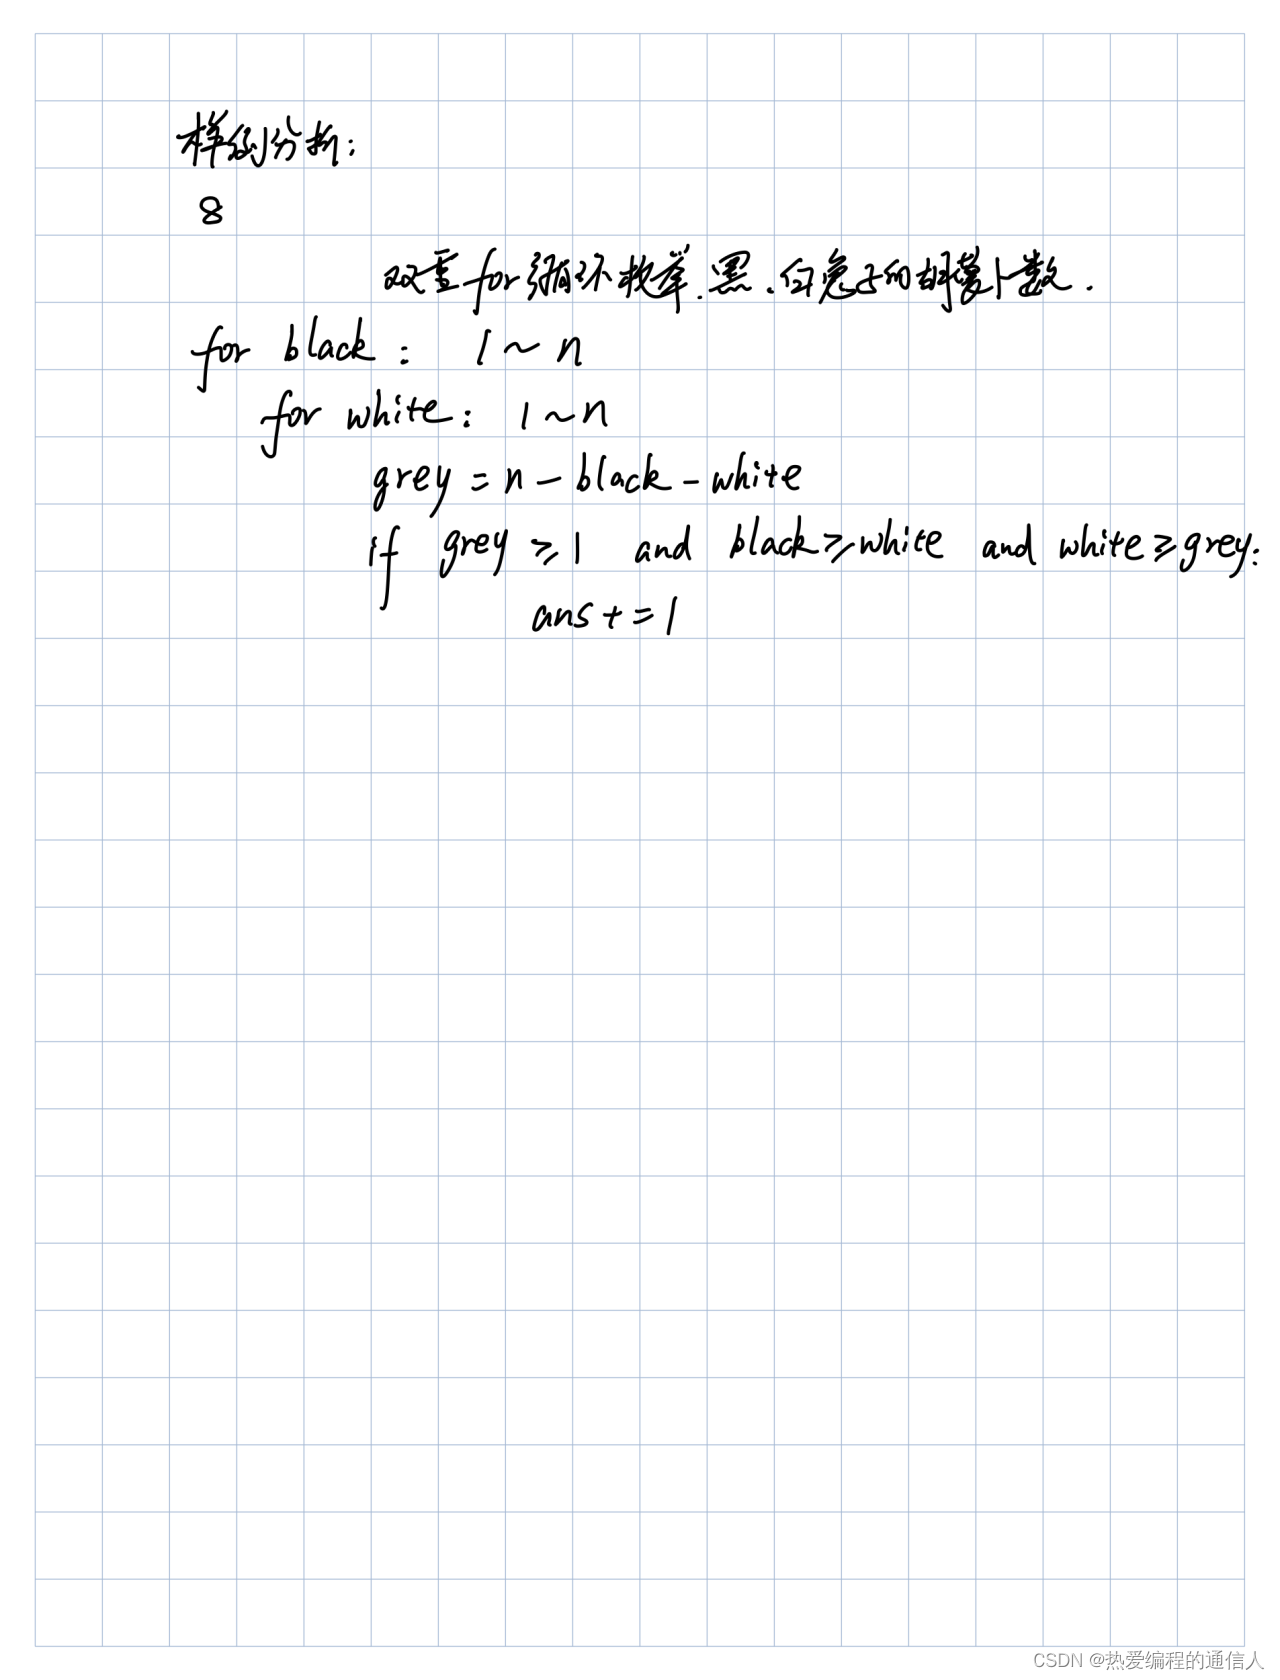 样例分析:
8
双重for循环枚举.黑.白兔子的胡萝卜数.
for black: 1~n
for white: 1~n
grey = n - black - white
if grey ≥ 1 and black ≥ white and white ≥ grey:
ans += 1
CSDN @热爱编程的通信人